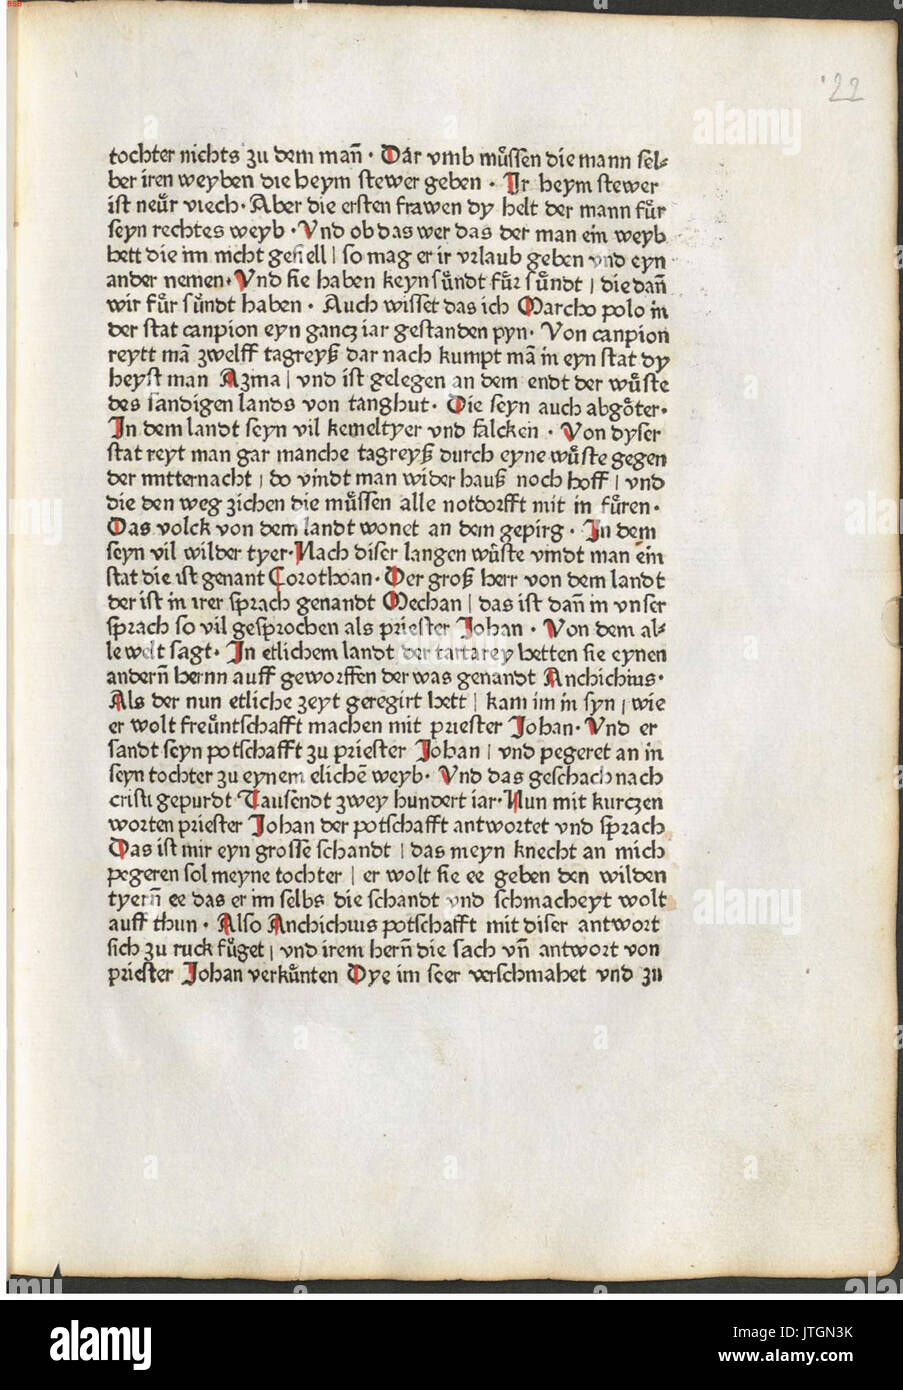 22
tochter nichts zu dem mañ · Dar vmb můssen die mann sel⸗
ber iren weyben die heym stewer geben · Ir heym stewer
ist neůr viech · Aber die ersten frawen dy helt der mann fůr
seyn rechtes weyb · Vnd ob das wer das der man ein weyb
hett die im nicht gefiell | so mag er ir vrlaub geben vnd eyn
ander nemen · Vnd sie haben keyn sůndt fůr sůndt | die dañ
wir fůr sůndt haben · Auch wisset das ich Marcho polo in
der stat canpion eyn gancz iar gestanden pyn · Von canpion
reytt mā zwelff tagreyß dar nach kumpt mā in eyn stat dy
heyst man Azma | vnd ist gelegen an dem endt der wůste
des sandigen lands von tanghut · Die seyn auch abgőter ·
In dem landt seyn vil kemeltyer vnd falcken · Von dyser
stat reyt man gar manche tagreyß durch eyne wůste gegen
der mitternacht | do vindt man wider hauß noch hoff | vnd
die den weg zichen die můssen alle notdorfft mit in fůren ·
Das volck von dem landt wonet an dem gepirg · In dem
seyn vil wilder tyer · Nach diser langen wůste vindt man ein
stat die ist genant Corothoan · Der groß herr von dem landt
der ist in irer sprach genandt Mechan | das ist dañ in vnser
sprach so vil gesprochen als priester Johan · Von dem al⸗
le welt sagt · In etlichem landt der tartarey hetten sie eynen
anderñ hernn auff geworffen der was genandt Anchichius ·
Als der nun etliche zeyt geregirt hett | kam im in syn | wie
er wolt freůntschafft machen mit priester Johan · Vnd er
sandt seyn potschafft zu priester Johan | vnd pegeret an in
seyn tochter zu eynem elichē weyb · Vnd das geschach nach
cristi gepurdt Tausendt zwey hundert iar · Nun mit kurczen
worten priester Johan der potschafft antwortet vnd sprach
Das ist mir eyn grosse schandt | das meyn knecht an mich
pegeren sol meyne tochter | er wolt sie ee geben den wilden
tyerñ ee das er im selbs die schandt vnd schmacheyt wolt
auff thun · Also Anchichius potschafft mit diser antwort
sich zu ruck fůget | vnd irem herñ die sach vñ antwort von
priester Johan verkůnten Dye im seer verschmahet vnd zu
alamy
Image ID: JTGN3K
www.alamy.com